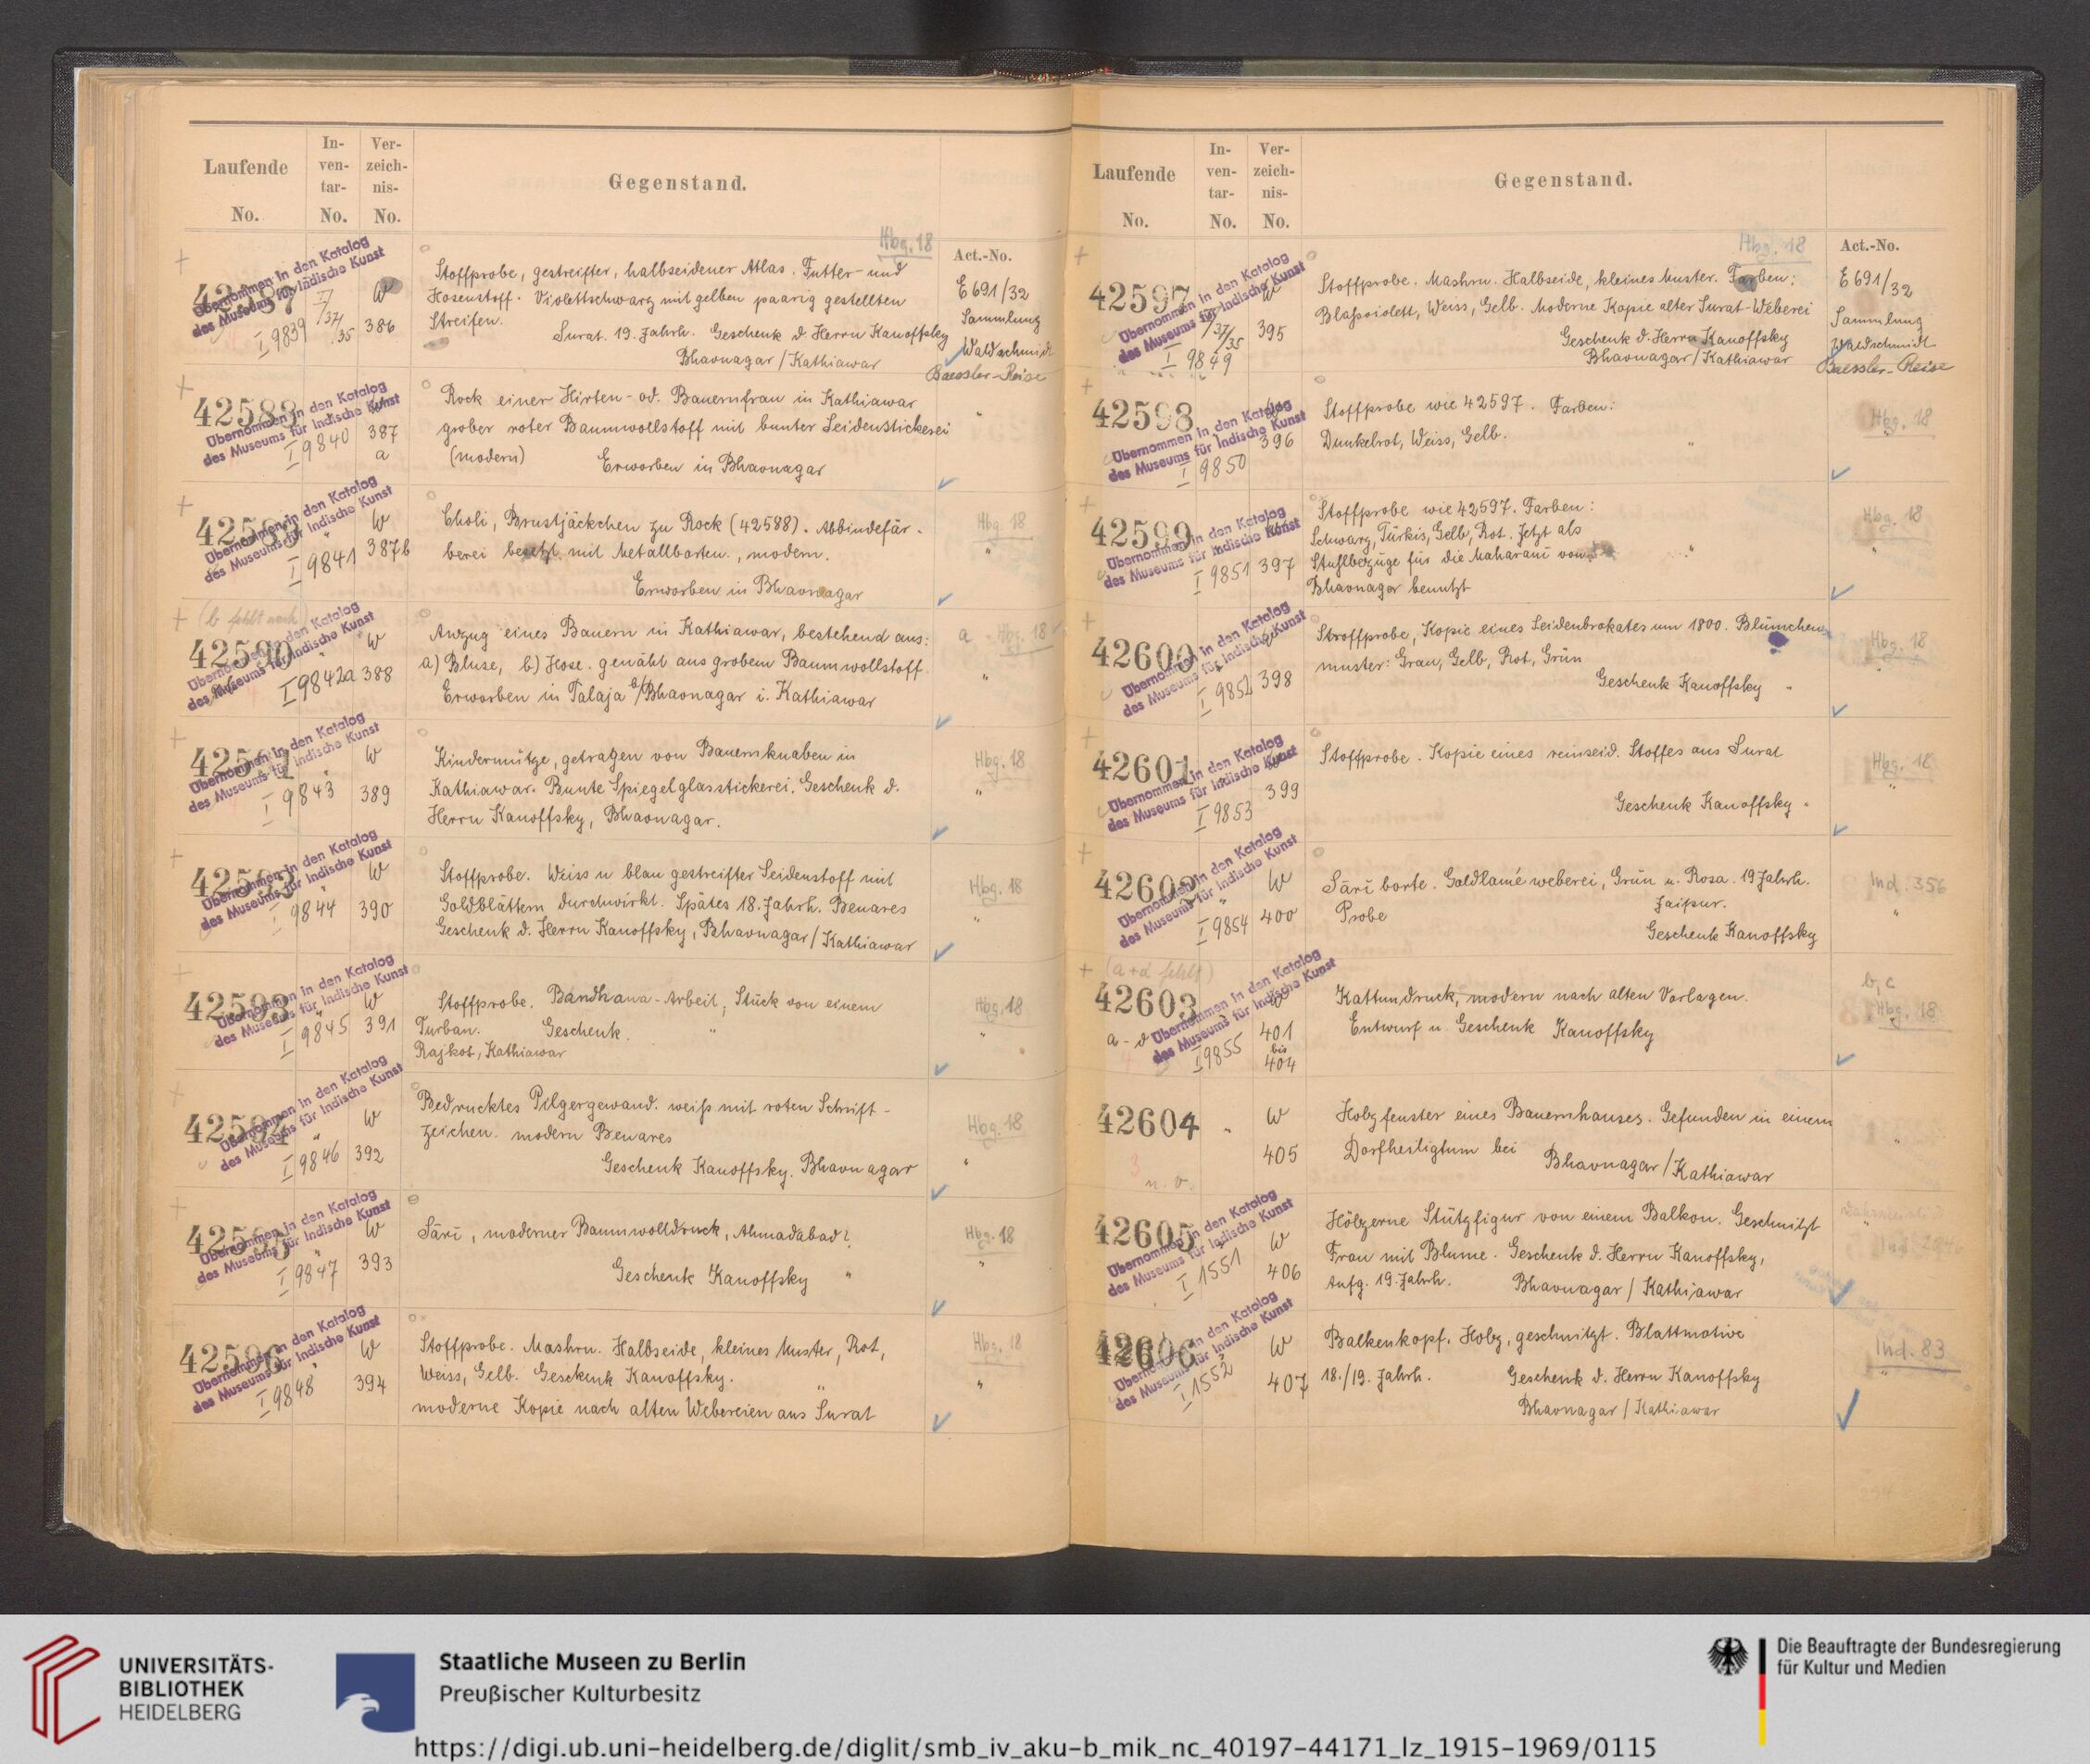 Laufende
No.
In-
ven-
tar-
No.
Ver-
zeich-
nis-
No.
Gegenstand.
Hbg. 18
Act.-No.
Übernommen in den Katalog
des Museums für Indische Kunst
I 9839
I/37/35
W
386
Stoffprobe, gestreifter, halbseidener Atlas. Futter- und
Hosenstoff. Violettschwarz mit gelben paarig gestellten
Streifen.
Surat. 19. Jahrh. Geschenk d. Herrn Kanoffsky
Bhavnagar / Kathiawar
E 691/32
Sammlung
Waldschmidt
Baessler-Reise
42588
Übernommen in den Katalog
des Museums für Indische Kunst
I 9840
387
a
Rock einer Hirten- od. Bauernfrau in Kathiawar
grober roter Baumwollstoff mit bunter Seidenstickerei
(modern) Erworben in Bhavnagar
"
42589
Übernommen in den Katalog
des Museums für Indische Kunst
I 9841
W
387b
Choli, Brustjäckchen zu Rock (42588). Abbindefär-
berei besetzt mit Metallborten, modern.
Erworben in Bhavnagar
Hbg. 18
"
(b fehlt noch)
42590
Übernommen in den Katalog
des Museums für Indische Kunst
I 9842a
W
388
Anzug eines Bauern in Kathiawar, bestehend aus:
a) Bluse, b) Hose. genäht aus grobem Baumwollstoff
Erworben in Talaja b/Bhavnagar i. Kathiawar
a Hbg. 18
"
42591
Übernommen in den Katalog
des Museums für Indische Kunst
I 9843
W
389
Kindermütze, getragen von Bauernknaben in
Kathiawar. Bunte Spiegelglasstickerei. Geschenk d.
Herrn Kanoffsky, Bhavnagar.
Hbg. 18
"
42592
Übernommen in den Katalog
des Museums für Indische Kunst
I 9844
W
390
Stoffprobe. Weiss u blau gestreifter Seidenstoff mit
Goldblättern durchwirkt. Spätes 18. Jahrh. Benares
Geschenk d. Herrn Kanoffsky, Bhavnagar / Kathiawar
Hbg. 18
"
42593
Übernommen in den Katalog
des Museums für Indische Kunst
I 9845
W
391
Stoffprobe. Bandhana-Arbeit, Stück von einem
Turban. Geschenk. "
Rajkot, Kathiawar
Hbg. 18
"
42594
Übernommen in den Katalog
des Museums für Indische Kunst
I 9846
W
392
Bedrucktes Pilgergewand. weiß mit roten Schrift-
zeichen. modern Benares
Geschenk Kanoffsky. Bhavnagar
Hbg. 18
"
42595
Übernommen in den Katalog
des Museums für Indische Kunst
I 9847
W
393
Sārī, moderner Baumwolldruck, Ahmadabad?
Geschenk Kanoffsky "
Hbg. 18
"
42596
Übernommen in den Katalog
des Museums für Indische Kunst
I 9848
W
394
Stoffprobe. Mashru. Halbseide, kleines Muster, Rot,
Weiss, Gelb. Geschenk Kanoffsky. "
moderne Kopie nach alten Webereien aus Surat
Hbg. 18
"
Laufende
No.
In-
ven-
tar-
No.
Ver-
zeich-
nis-
No.
Gegenstand.
Hbg. 18
Act.-No.
42597
Übernommen in den Katalog
des Museums für Indische Kunst
/37/35
I 9849
W
395
Stoffprobe. Mashru. Halbseide, kleines Muster. Farben:
Blaßviolett, Weiss, Gelb. Moderne Kopie alter Surat-Weberei
Geschenk d. Herrn Kanoffsky
Bhavnagar / Kathiawar
E 691/32
Sammlung
Waldschmidt
Baessler-Reise
42598
Übernommen in den Katalog
des Museums für Indische Kunst
I 9850
396
Stoffprobe wie 42597. Farben:
Dunkelrot, Weiss, Gelb.
"
Hbg. 18
42599
Übernommen in den Katalog
des Museums für Indische Kunst
I 9851
397
Stoffprobe wie 42597. Farben:
Schwarz, Türkis, Gelb, Rot. Jetzt als
Stuhlbezüge für die Maharani von
Bhavnagar benutzt
"
Hbg. 18
42600
Übernommen in den Katalog
des Museums für Indische Kunst
I 9852
398
Stroffprobe, Kopie eines Seidenbrokates um 1800. Blümchen
muster: Grau, Gelb, Rot, Grün
Geschenk Kanoffsky "
Hbg. 18
42601
Übernommen in den Katalog
des Museums für Indische Kunst
I 9853
399
Stoffprobe. Kopie eines reinseid. Stoffes aus Surat
Geschenk Kanoffsky "
Hbg. 18
"
42602
Übernommen in den Katalog
des Museums für Indische Kunst
I 9854
W
400
Sārī borte. Goldlamé weberei, Grün u. Rosa. 19 Jahrh.
Probe Jaipur.
Geschenk Kanoffsky
Ind. 356
"
(a+d fehlt)
42603
a - d
Übernommen in den Katalog
des Museums für Indische Kunst
I 9855
W
401
bis
404
Kattundruck, modern nach alten Vorlagen.
Entwurf u. Geschenk Kanoffsky
b, c
Hbg. 18
42604
"
W
405
3
n. v.
Holzfenster eines Bauernhauses. Gefunden in einem
Dorfheiligtum bei Bhavnagar / Kathiawar
"
42605
Übernommen in den Katalog
des Museums für Indische Kunst
I 1551
W
406
Hölzerne Stützfigur von einem Balkon. Geschnitzt
Frau mit Blume. Geschenk d. Herrn Kanoffsky,
Anfg. 19. Jahrh. Bhavnagar / Kathiawar
"
42606
Übernommen in den Katalog
des Museums für Indische Kunst
I 1552
W
407
Balkenkopf. Holz, geschnitzt. Blattmotive
18./19. Jahrh. Geschenk d. Herrn Kanoffsky
Bhavnagar / Kathiawar
Ind. 83
"
UNIVERSITÄTS-
BIBLIOTHEK
HEIDELBERG
Staatliche Museen zu Berlin
Preußischer Kulturbesitz
Die Beauftragte der Bundesregierung
für Kultur und Medien
https://digi.ub.uni-heidelberg.de/diglit/smb_iv_aku-b_mik_nc_40197-44171_lz_1915-1969/0115